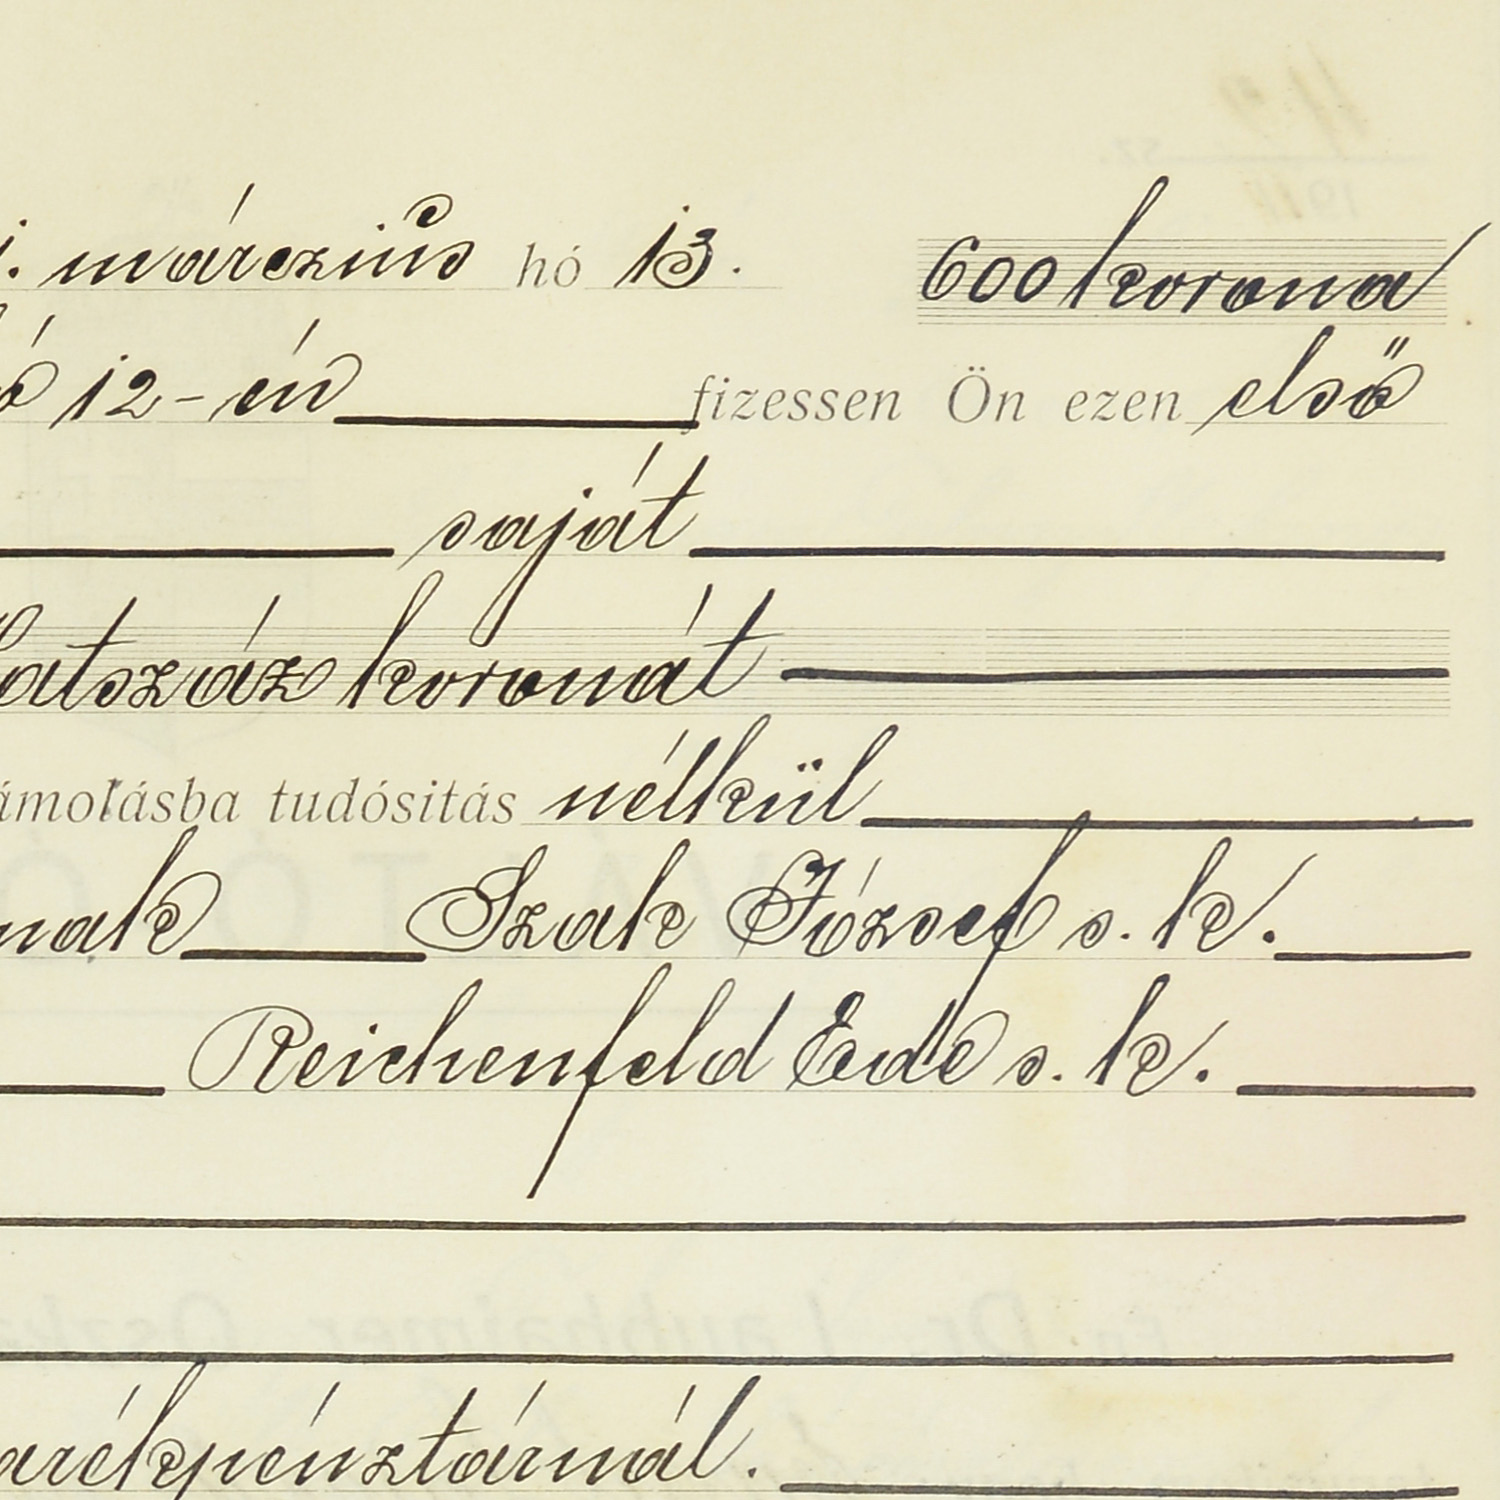 márczius hó 13. 600 korona
12-én fizessen Ön ezen első
saját
atszáz koronát
ámolásba tudósitás nélkül
nak Szak József s. k.
Reichenfeld Ede s. k.
arékpénztárnál.